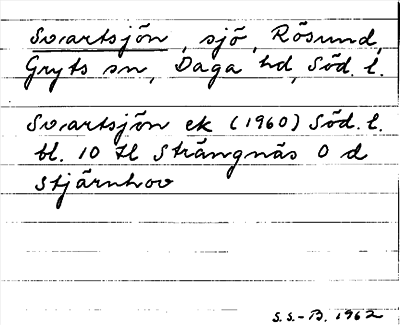 Svartsjön, sjö, Rösund,
Gryts sn, Daga hd, Söd. l.
Svartsjön ek (1960) Söd. l.
bl. 10 H Strängnäs O d
Stjärnhov
S.S.-B. 1962